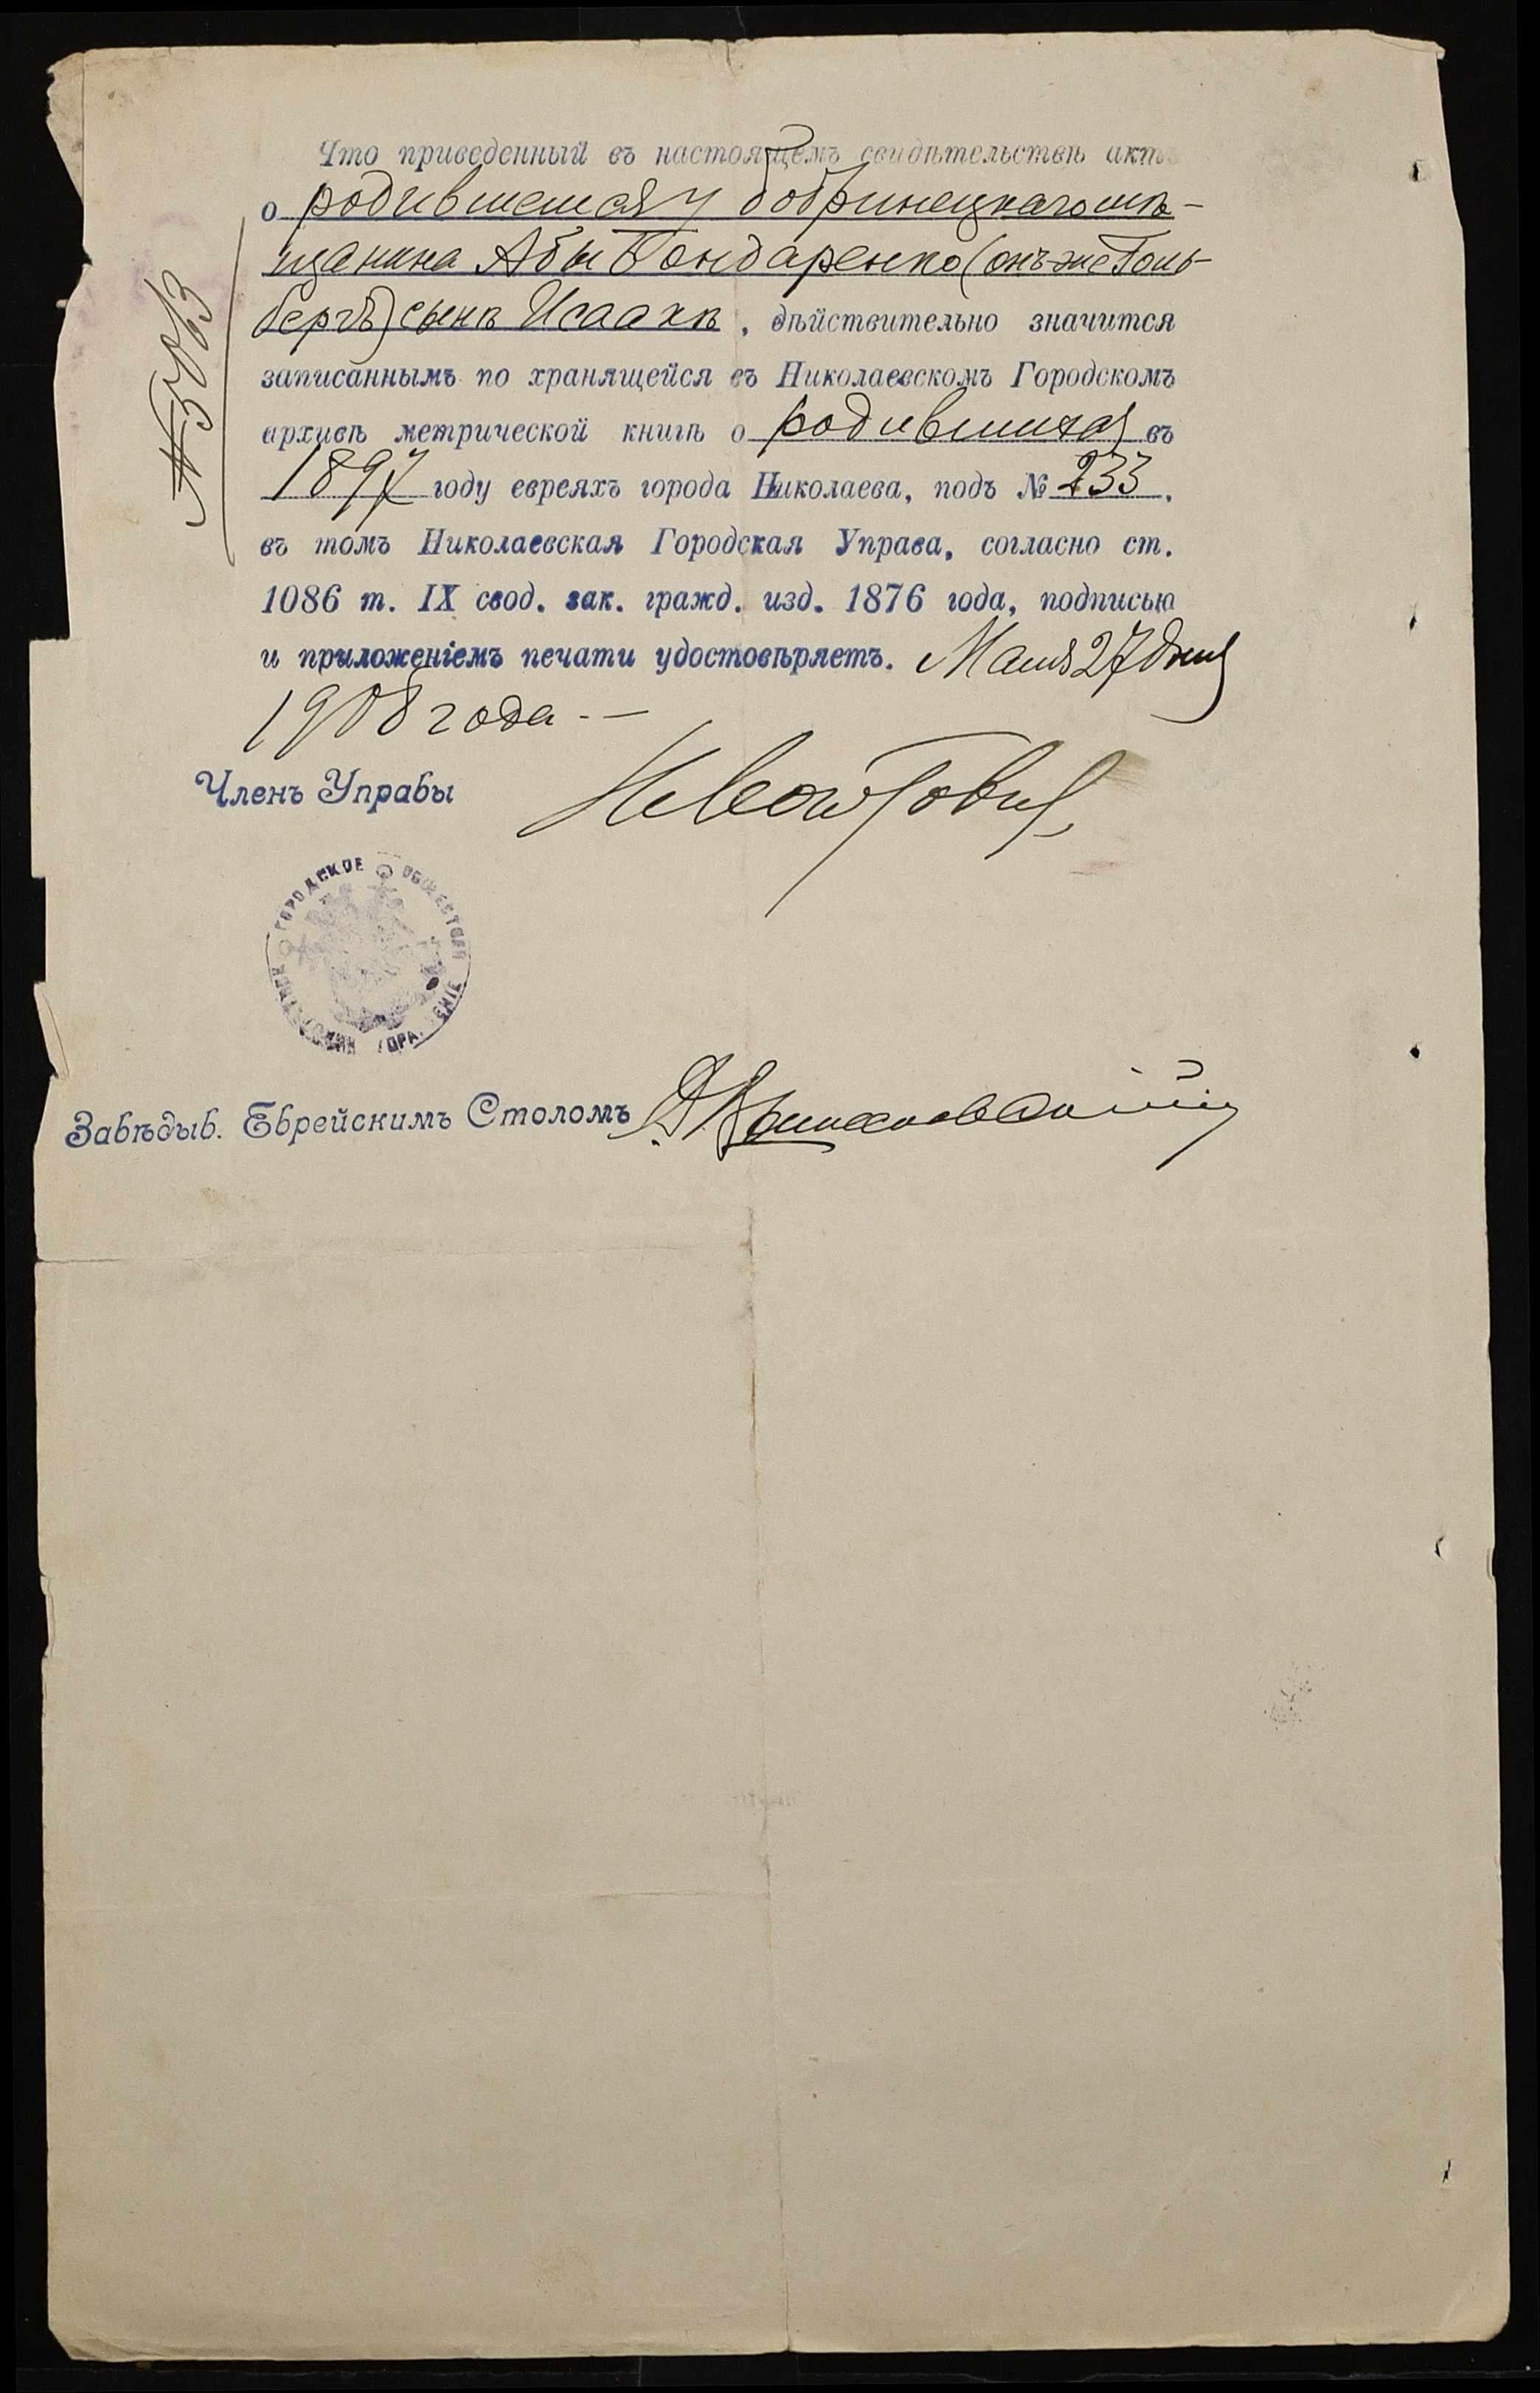 Что приведенный въ настоящемъ свидѣтельствѣ актъ
о родившемся у бобринецкаго мѣ-
щанина Абы Бондаренко (онъ же Голь-
бергъ) сынѣ Исаакѣ, дѣйствительно значится
записаннымъ по хранящейся въ Николаевскомъ Городскомъ
архивѣ метрической книгѣ о родившихся въ
1897 году евреяхъ города Николаева, подъ № 233,
въ томъ Николаевская Городская Управа, согласно ст.
1086 т. IX свод. зак. гражд. изд. 1876 года, подписью
и приложеніемъ печати удостовѣряетъ. Мая 27 дня
1908 года.
№ 5063
Членъ Управы
ГОРОДСКОЕ ОБЩЕСТВЕН УПРАВЛЕНІЕ
Завѣдыв. Еврейскимъ Столомъ